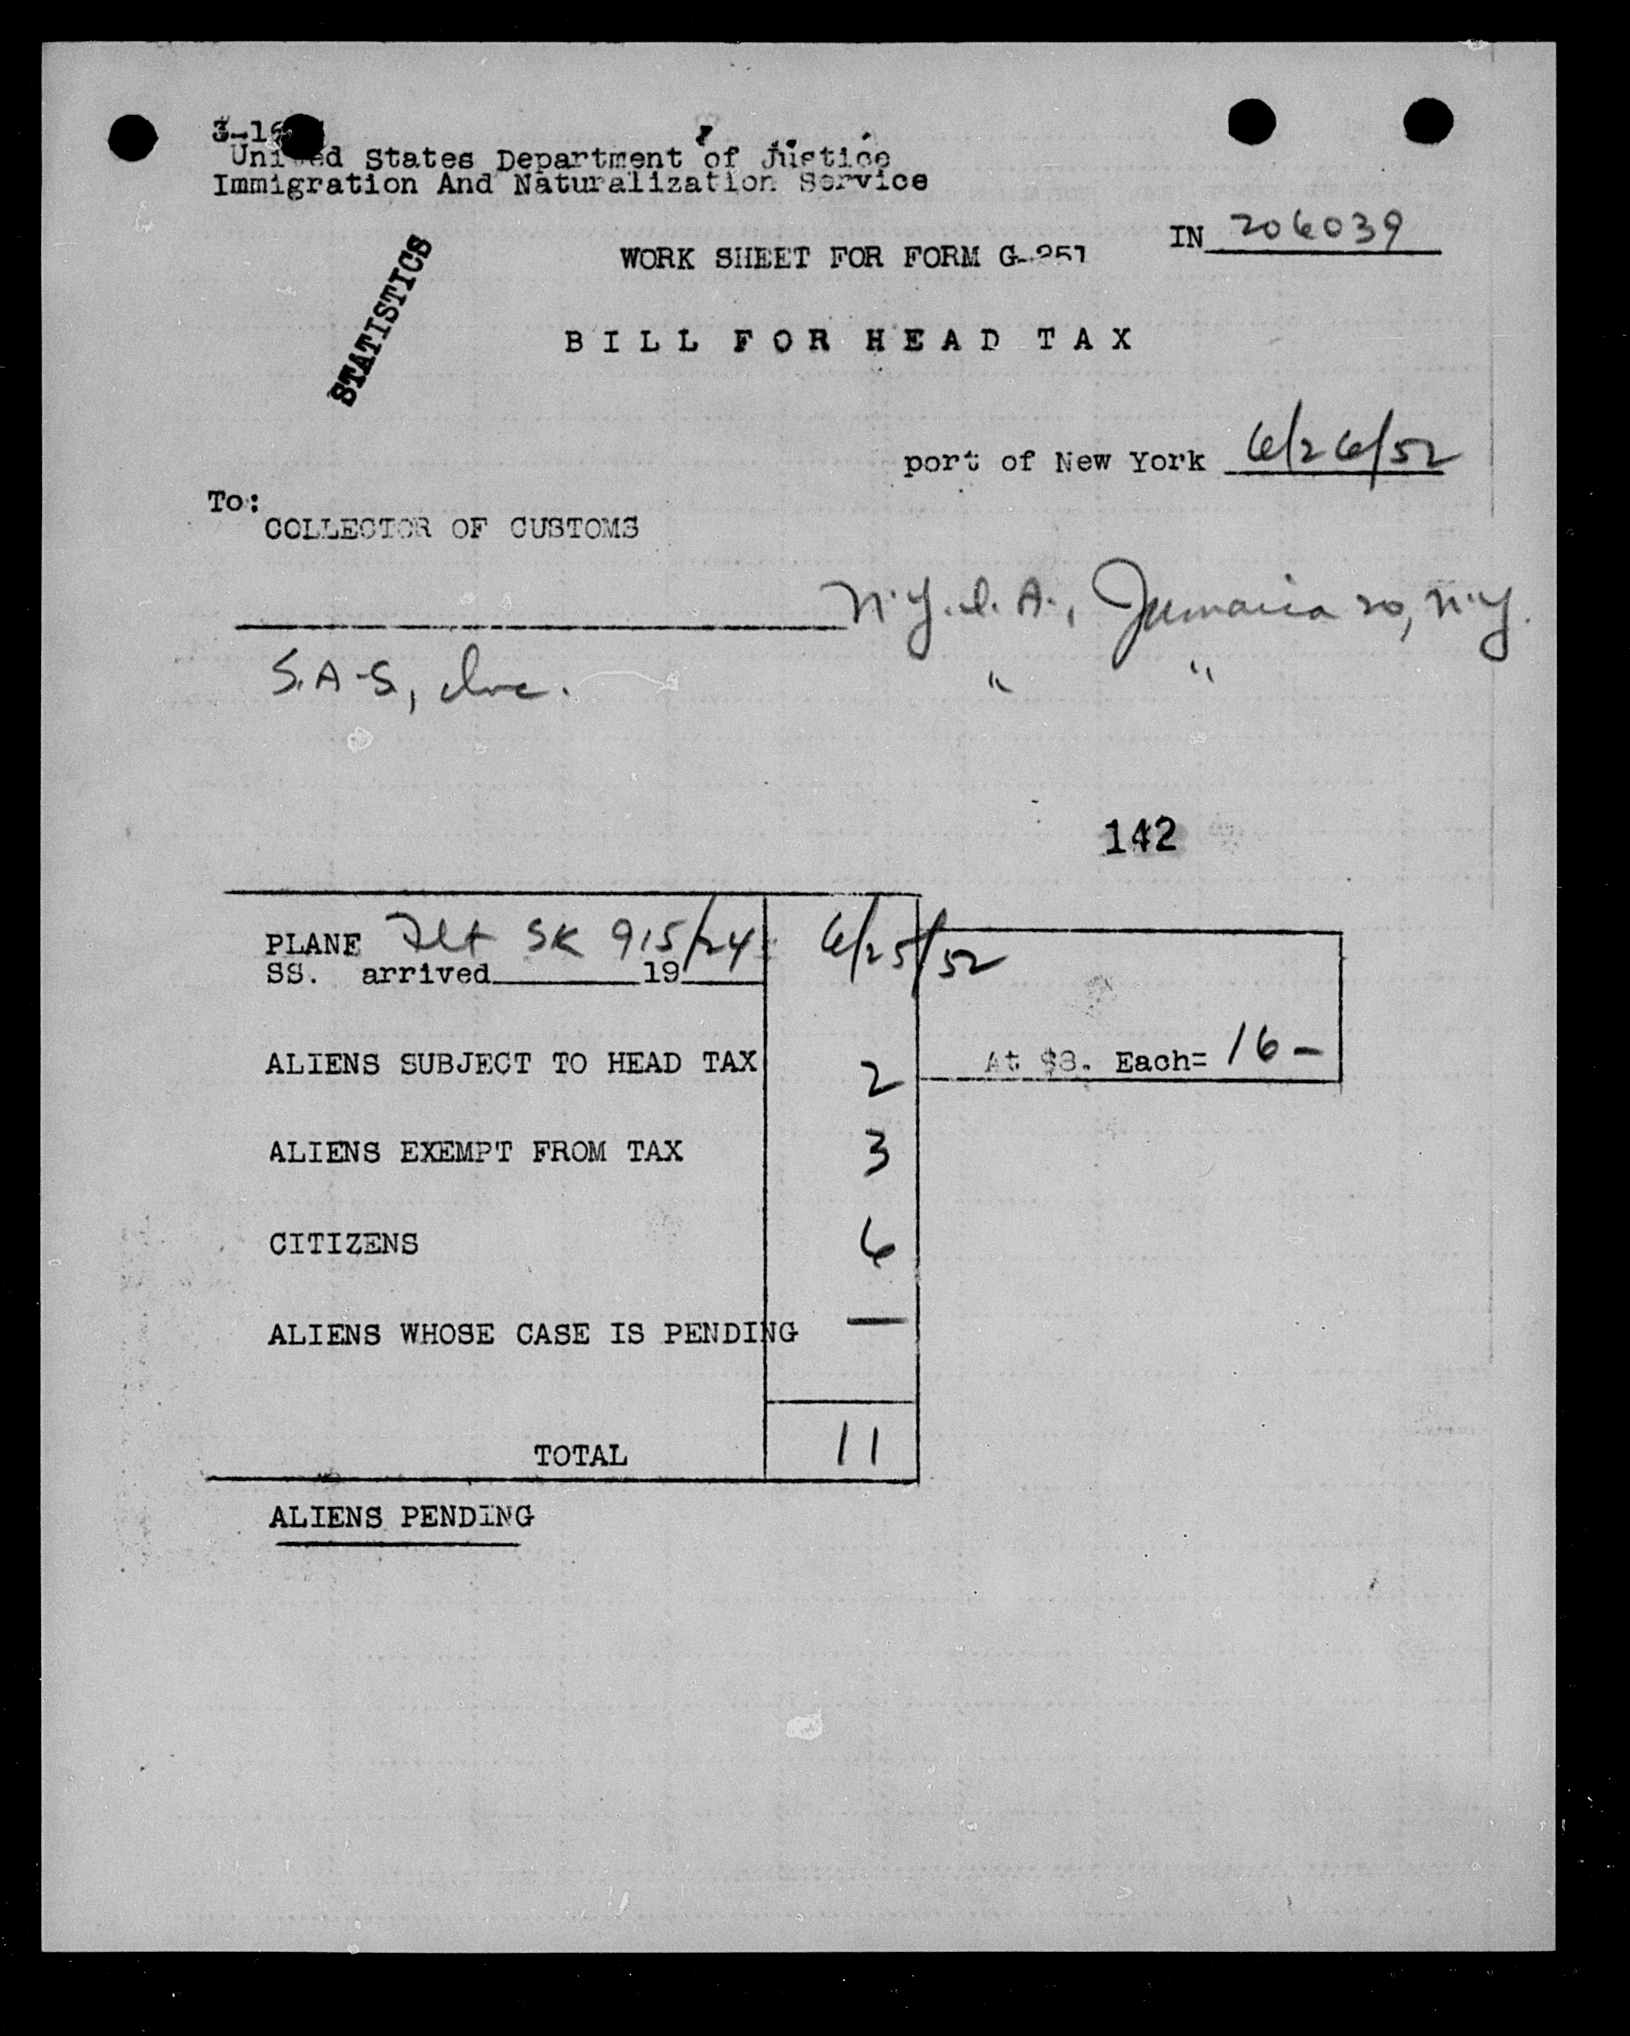 United States Department of Justice
Immigration And Naturalization Service
IN 206039
WORK SHEET FOR FORM G-251
STATISTICS
BILL FOR HEAD TAX
port of New York 6/26/52
To:
COLLECTOR OF CUSTOMS
N.Y.I.A., Jamaica 20, N.Y.
S.A.S., Inc. " "
142
PLANE Flt SK 915/24 6/25/52
SS. arrived 19
ALIENS SUBJECT TO HEAD TAX 2 At $8. Each= 16-
ALIENS EXEMPT FROM TAX 3
CITIZENS 6
ALIENS WHOSE CASE IS PENDING —
TOTAL 11
ALIENS PENDING